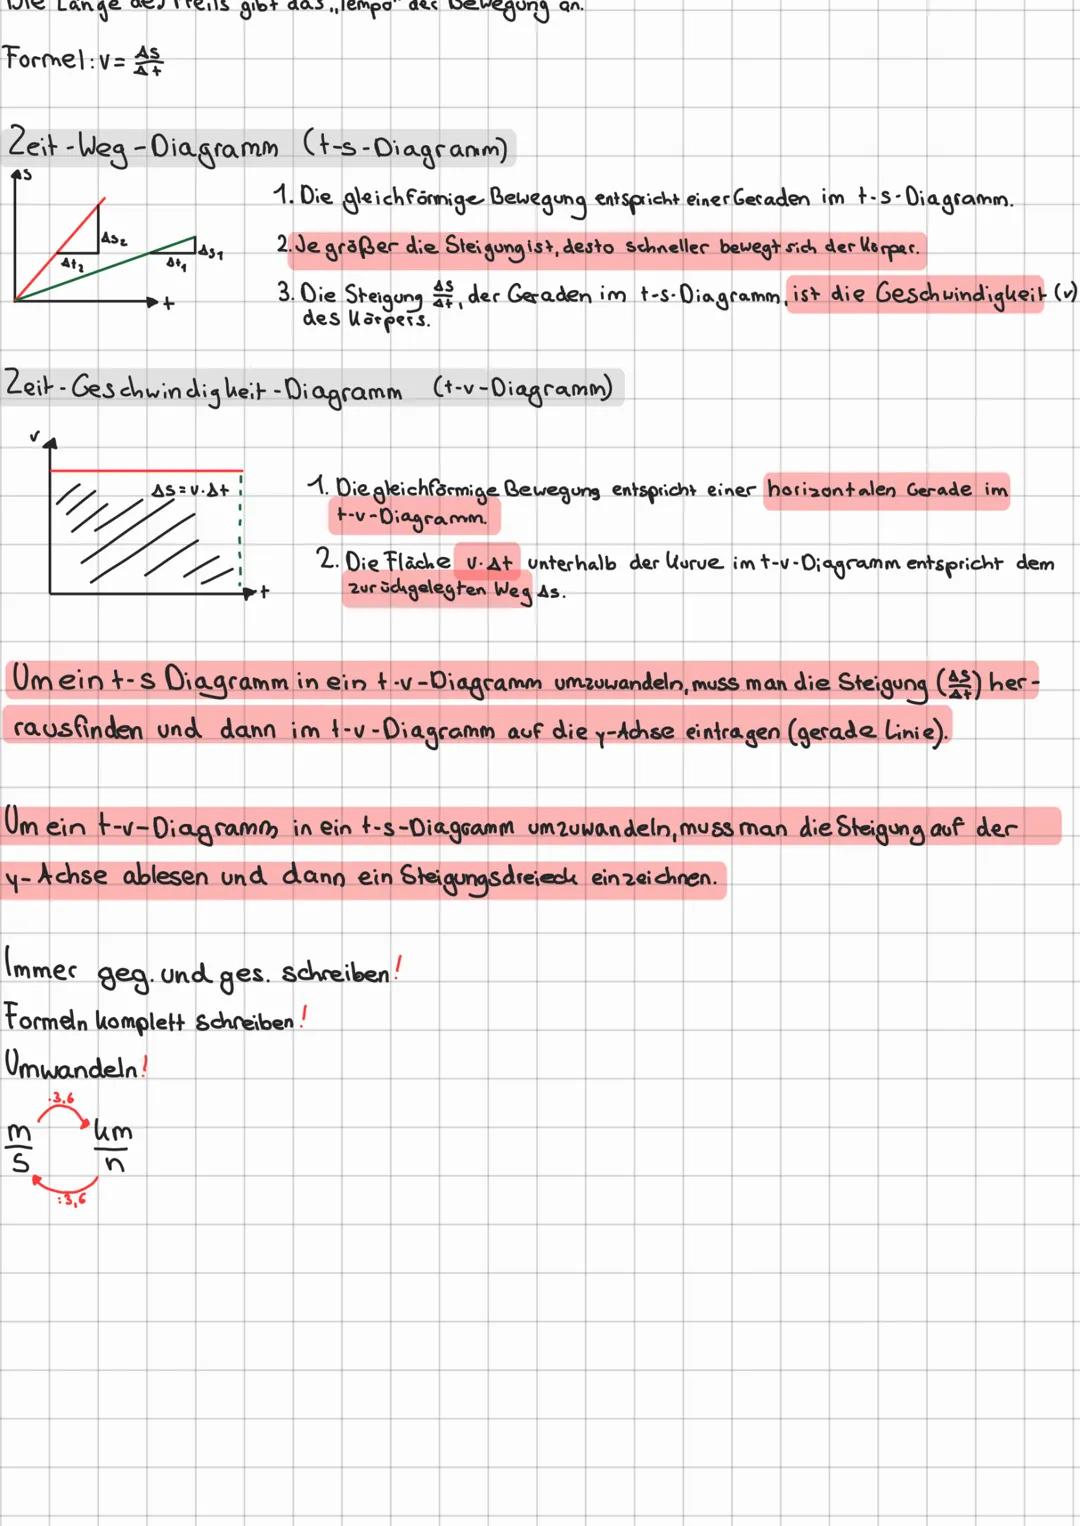 Die Länge des Pfeils gibt das „Tempo" der Bewegung an.
Formel: v = Δs/Δt
Zeit-Weg-Diagramm (t-s-Diagramm)
s
Δs₂
Δt₂
Δs₁
Δt₁
t
1. Die gleichförmige Bewegung entspricht einer Geraden im t-s-Diagramm.
2. Je größer die Steigung ist, desto schneller bewegt sich der Körper.
3. Die Steigung Δs/Δt, der Geraden im t-s-Diagramm, ist die Geschwindigkeit (v)
des Körpers.
Zeit-Geschwindigkeit-Diagramm (t-v-Diagramm)
v
Δs = v·Δt
t
1. Die gleichförmige Bewegung entspricht einer horizontalen Gerade im
t-v-Diagramm.
2. Die Fläche v·Δt unterhalb der Kurve im t-v-Diagramm entspricht dem
zurückgelegten Weg Δs.
Um ein t-s Diagramm in ein t-v-Diagramm umzuwandeln, muss man die Steigung (Δs/Δt) her-
rausfinden und dann im t-v-Diagramm auf die y-Achse eintragen (gerade Linie).
Um ein t-v-Diagramm in ein t-s-Diagramm umzuwandeln, muss man die Steigung auf der
y-Achse ablesen und dann ein Steigungsdreieck einzeichnen.
Immer geg. und ges. schreiben!
Formeln komplett schreiben!
Umwandeln!
·3,6
m/s km/h
:3,6